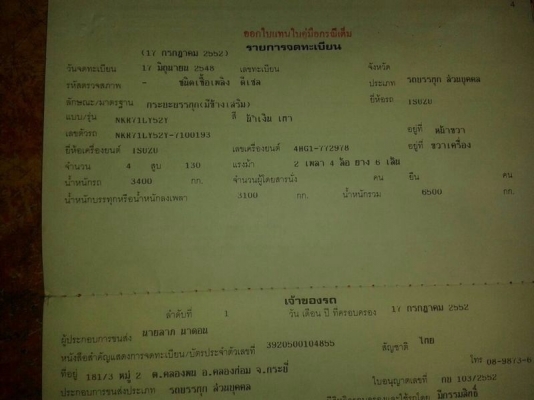 4
ออกใบแทนใบคู่มือกรณีเต็ม
(17 กรกฎาคม 2552) รายการจดทะเบียน
วันจดทะเบียน 17 มิถุนายน 2548 เลขทะเบียน จังหวัด
รหัสตรวจสภาพ - ชนิดเชื้อเพลิง ดีเซล ประเภท รถบรรทุก ส่วนบุคคล
ลักษณะ/มาตรฐาน กระบะบรรทุก(มีข้างเสริม) ยี่ห้อรถ ISUZU
แบบ/รุ่น NKR71LY52Y สี ฟ้าเงิน เทา
เลขตัวรถ NKR71LY52Y-7100193 อยู่ที่ หน้าขวา
ยี่ห้อเครื่องยนต์ ISUZU เลขเครื่องยนต์ 4HG1-772978 อยู่ที่ ขวาเครื่อง
จำนวน 4 สูบ 130 แรงม้า 2 เพลา 4 ล้อ ยาง 6 เส้น
น้ำหนักรถ 3400 กก. จำนวนผู้โดยสารนั่ง คน ยืน คน
น้ำหนักบรรทุกหรือน้ำหนักลงเพลา 3100 กก. น้ำหนักรวม 6500 กก.
เจ้าของรถ
ลำดับที่ 1 วัน เดือน ปี ที่ครอบครอง 17 กรกฎาคม 2552
ผู้ประกอบการขนส่ง นายลาภ
หนังสือสำคัญแสดงการจดทะเบียน/บัตรประจำตัวเลขที่ 3920500104855 สัญชาติ ไทย
ที่อยู่ 181/3 หมู่ 2 ต.คลองพน อ.คลองท่อม จ.กระบี่ โทร 08-9873-6
ประกอบการขนส่งประเภท รถบรรทุก ส่วนบุคคล ใบอนุญาตเลขที่ กบ 103/2552
มีกรรมสิทธิ์